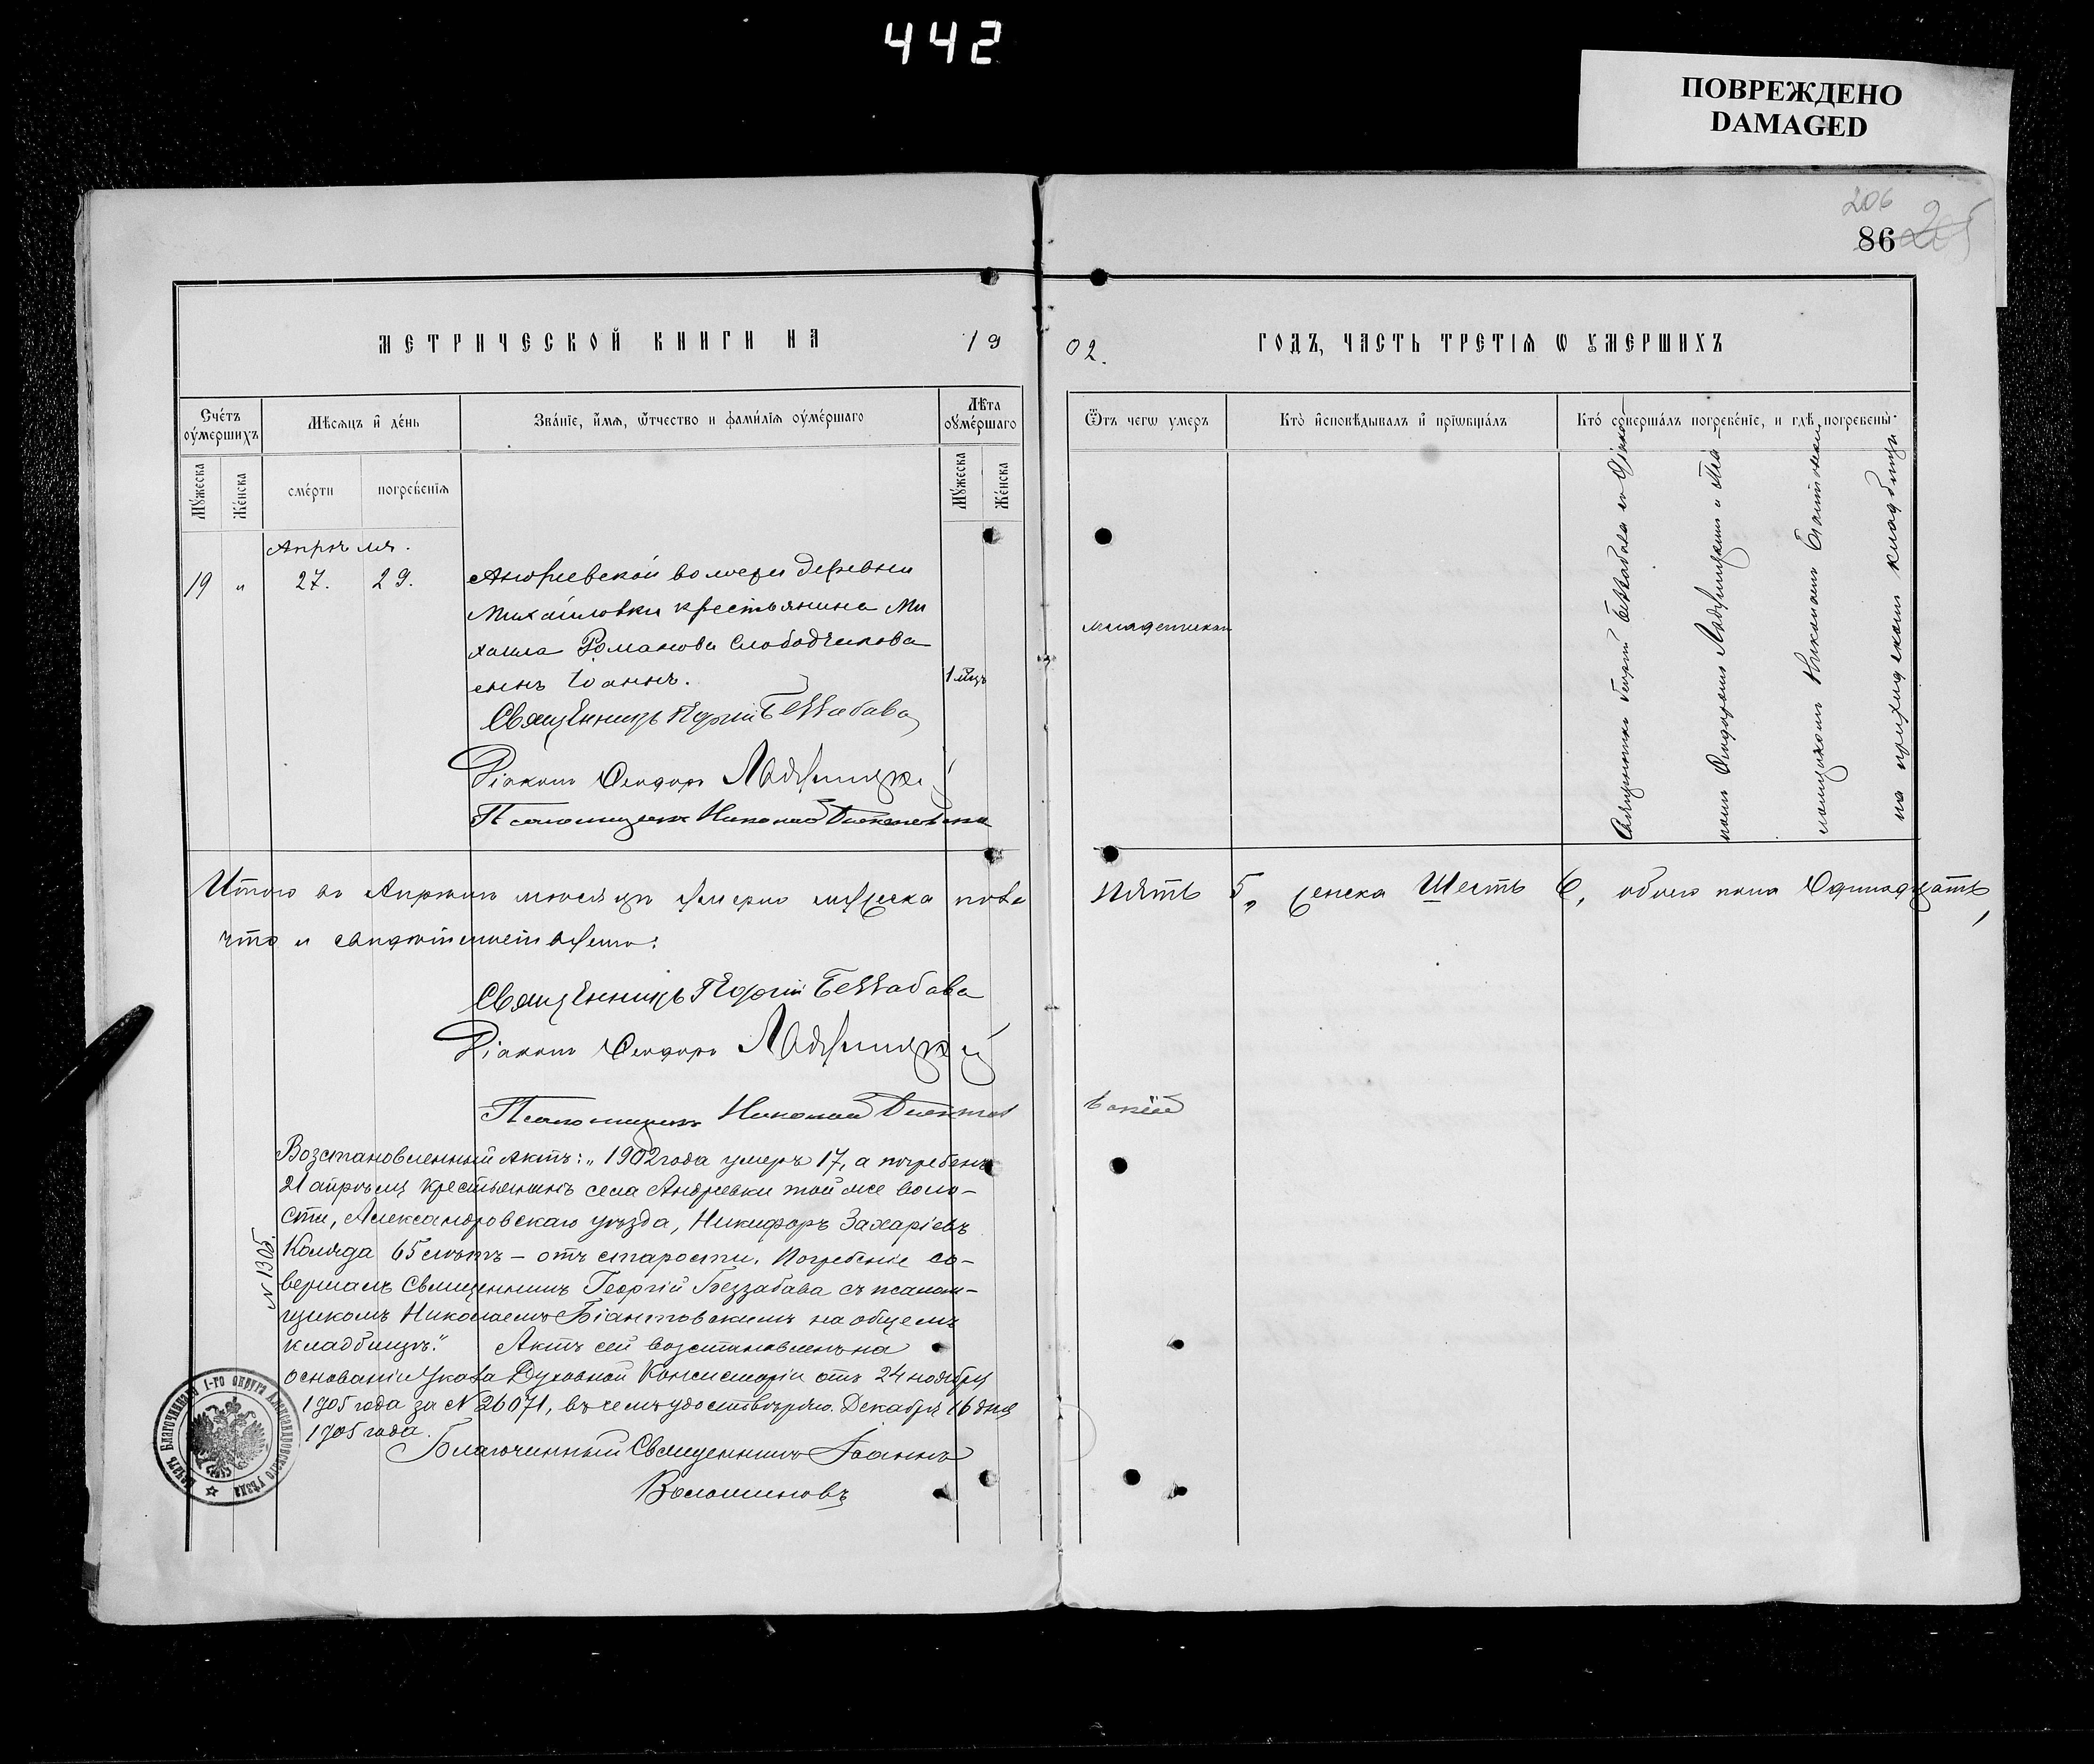 442
ПОВРЕЖДЕНО
DAMAGED
206
86
205
МЕТРИЧЕСКОЙ КНИГИ НА 19
02. ГОДЪ, ЧАСТЬ ТРЕТІЯ Ѡ УМЕРШИХЪ
Счетъ умершихъ
Мѣсяцъ и день
Званіе, имя, отчество и фамилія умершаго
Лѣта умершаго
Ѿъ чегѡ умеръ
Кто исповѣдывалъ и пріѡбщалъ
Кто совершалъ погребеніе, и гдѣ погребены
Мужеска
Женска
смерти
погребенія
Мужеска
Женска
Апрѣля.
19 " 27. 29.
Андреевской волости деревни
Михайловки крестьянина Ми
хаила Романова Слободчикова
сынъ Іоаннъ.
1 мѣц.
Священникъ Георгій Беззабава
Діаконъ Феодоръ Ладушицкій
Псаломщикъ Николай
младенческой
Священникъ Георгій Беззабава съ Діако
номъ Феодоромъ Ладушицкимъ и Пса
ломщикомъ Николаемъ
на приходскомъ кладбищѣ
Итого въ Апрѣлѣ мѣсяцѣ умерло мужеска пола
пять 5, женска шесть 6, обоего пола Одинадцать,
что и свидѣтельствуемъ:
Священникъ Георгій Беззабава
Діаконъ Феодоръ Ладушицкій
Псаломщикъ Николай
Возстановленный актъ: „1902 года умеръ 17, а погребенъ
21 апрѣля крестьянинъ села Андреевки той же воло-
сти, Александровскаго уѣзда, Никифоръ Захаріевъ
Коляда 65 лѣтъ – отъ старости. Погребеніе со-
вершалъ Священникъ Георгій Беззабава съ псалом-
щикомъ Николаемъ Біантовскимъ на общемъ
кладбищѣ." Актъ сей возстановленъ на
основаніи Указа Духовной Консисторіи отъ 24 ноября
1905 года за № 26071, въ чемъ удостовѣряю. Декабря 16 дня
1905 года.
№ 1305.
Благочинный Священникъ Іоаннъ
Волошиновъ
Печать Благочиннаго 1-го округа Александровскаго уѣзда